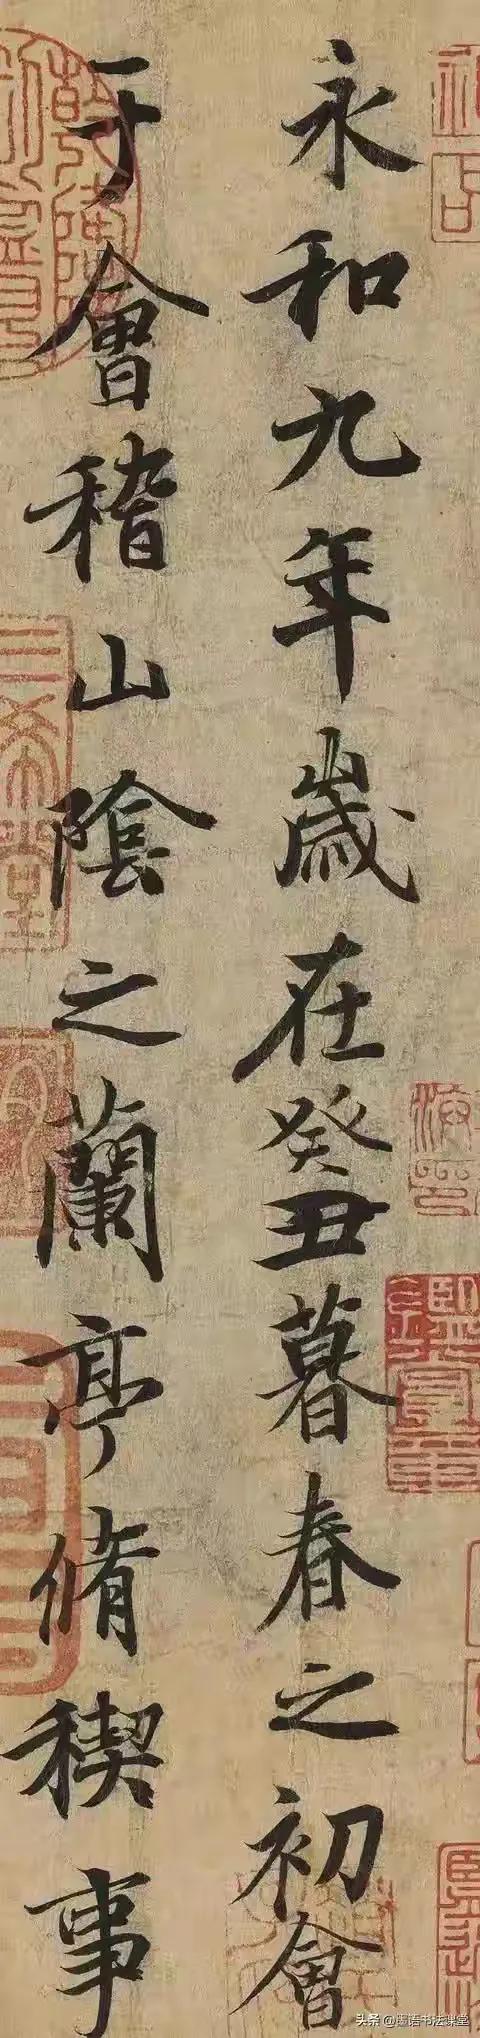 永和九年歲在癸丑暮春之初會
于會稽山陰之蘭亭脩稧事
三希堂
头条 @墨语书法课堂